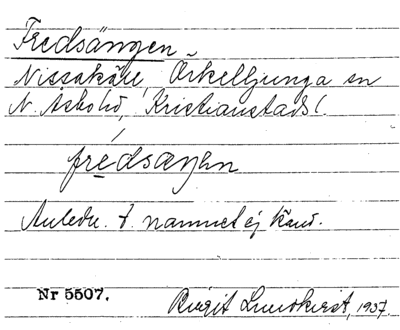 Fredsängen
Nissakäll, Örkelljunga sn
N. Åsbohd, Kristianstads l.
fredsaŋən
Anledn. t. namnet ej känd.
Nr 5507. Birgit Lundkvist, 1937.